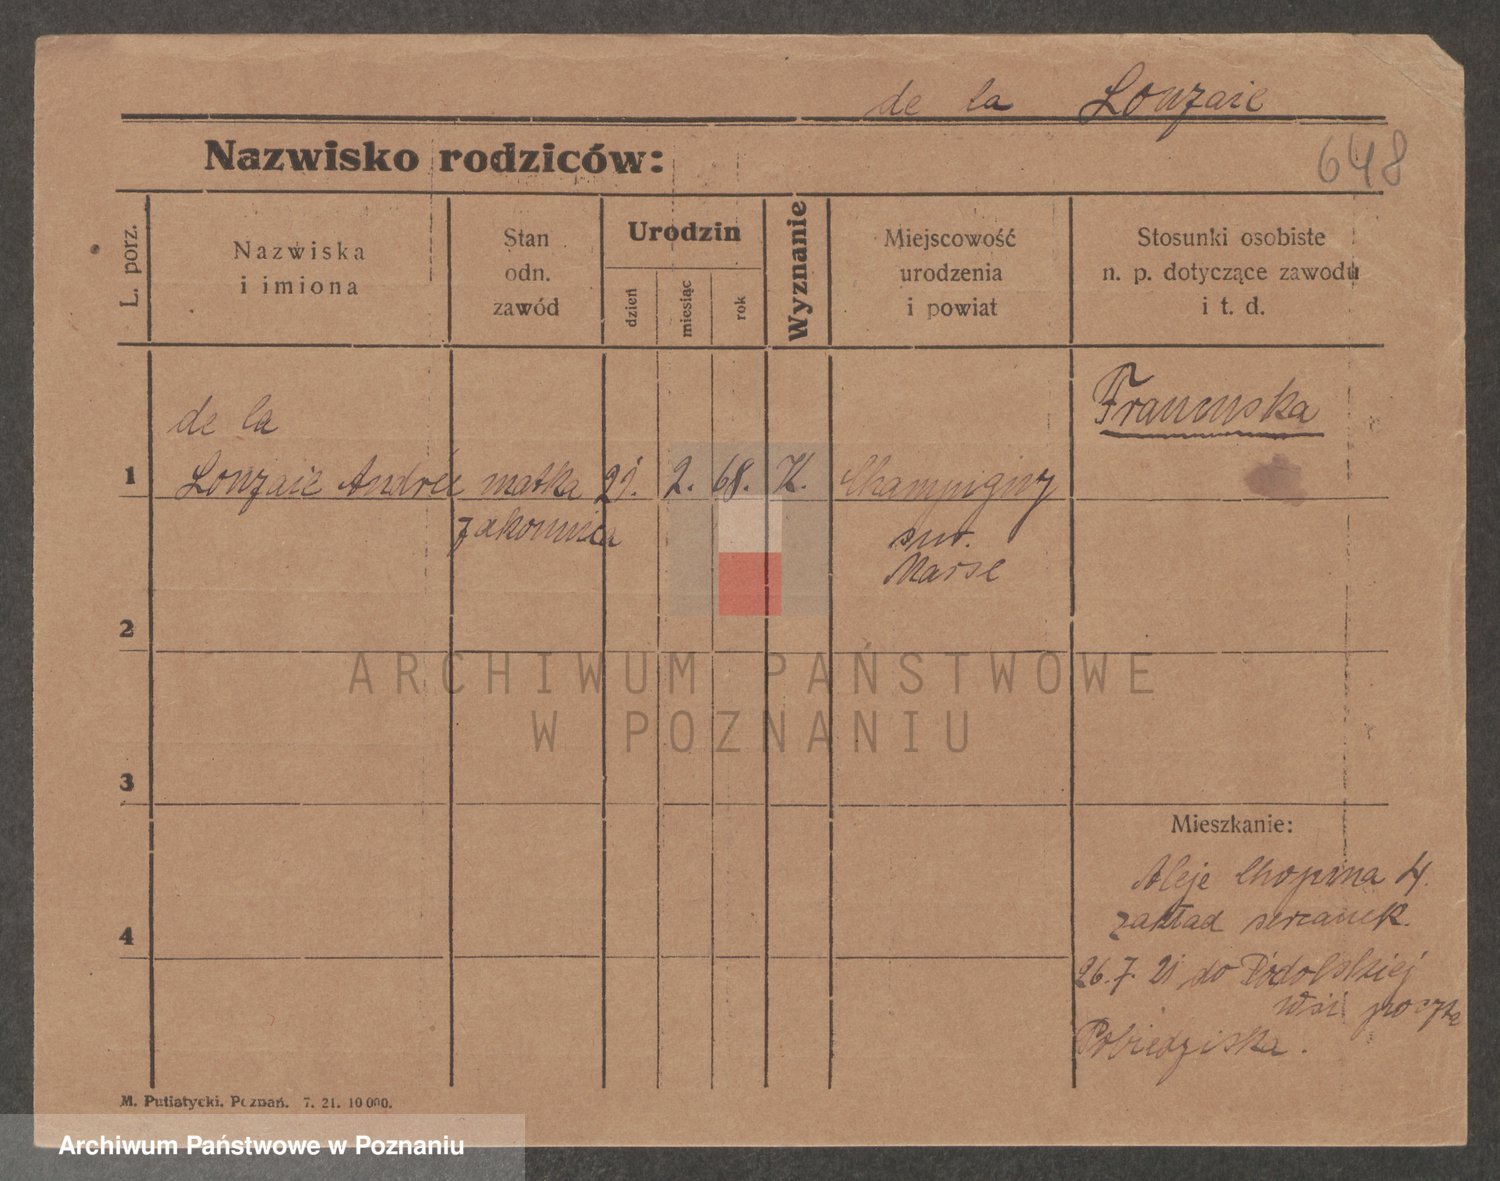 de la Louzaie
Nazwisko rodziców:
648
L. porz.
Nazwiska
i imiona
Stan
odn.
zawód
Urodzin
dzień
miesiąc
rok
Wyznanie
Miejscowość
urodzenia
i powiat
Stosunki osobiste
n. p. dotyczące zawodu
i t. d.
Francuska
de la
1 Louzaie Andrée matka 21. 2. 68. K. Champigny
zakonnica
sur.
Marse
2
ARCHIWUM PAŃSTWOWE
W POZNANIU
3
Mieszkanie:
Aleje Chopina 4.
zakład sercanek.
4
26.7.21 do Podolskiej
wsi poczta
Pobiedziska.
M. Putiatycki. Poznań. 7. 21. 10 000.
Archiwum Państwowe w Poznaniu